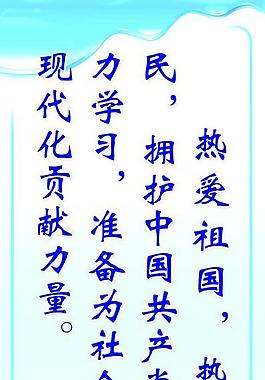 热爱祖国，
民，拥护中国共产
力学习，准备为社
现代化贡献力量。